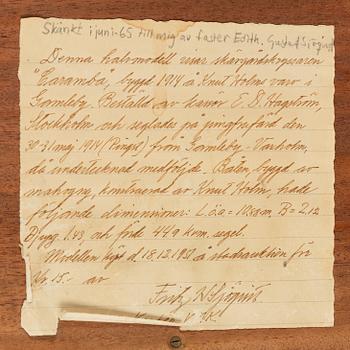 Skänkt i juni-65 till mig av faster Edith. Gustaf Sjöqvist
Denna halvmodell visar skärgårdskryssaren
"Caramba", byggd 1914 å Knut Holms varv i
Gamleby. Beställd av herrar E. D. Hagström,
Stockholm och seglades på jungfrufärd den
30-31 maj 1914 (Pingst) from Gamleby - Vaxholm,
då undertecknad medföljde. Båten, byggd av
mahogny, konstruerad av Knut Holm, hade
följande dimensioner: L.ö.a = 10.58 m, B = 2.12
Djup. 1.43, och förde 44.9 kvm. segel.
Modellen köpt d. 18.12.1951 å stadsauktion för
Kr 15.- av
Fritz Sjöqvist